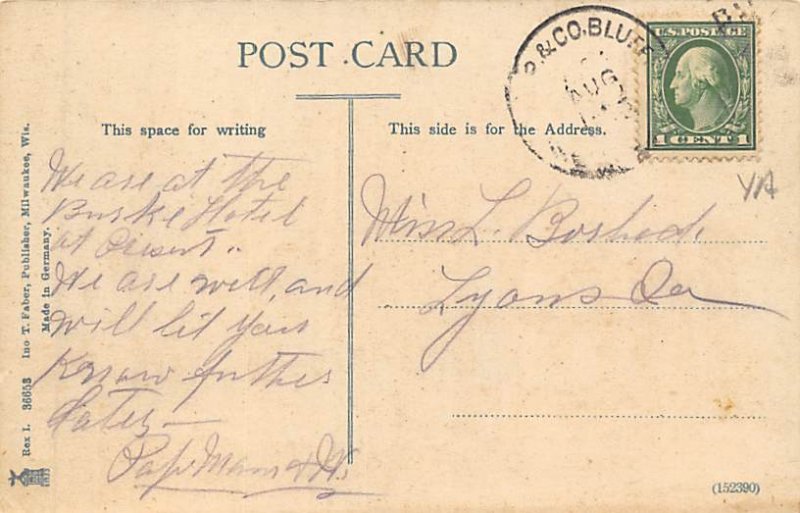 POST CARD
This space for writing
This side is for the Address.
& CO. BLUF
AUG
U.S. POSTAGE
1 CENT 1
We are at the
Burke Hotel
at Present..
We are well, and
will let you
Know further
Later —
Papa Mama & W.
Miss L.
Lyons
YA
Rex I. 36653 Ino T. Faber, Publisher, Milwaukee, Wis.
Made in Germany.
(152390)